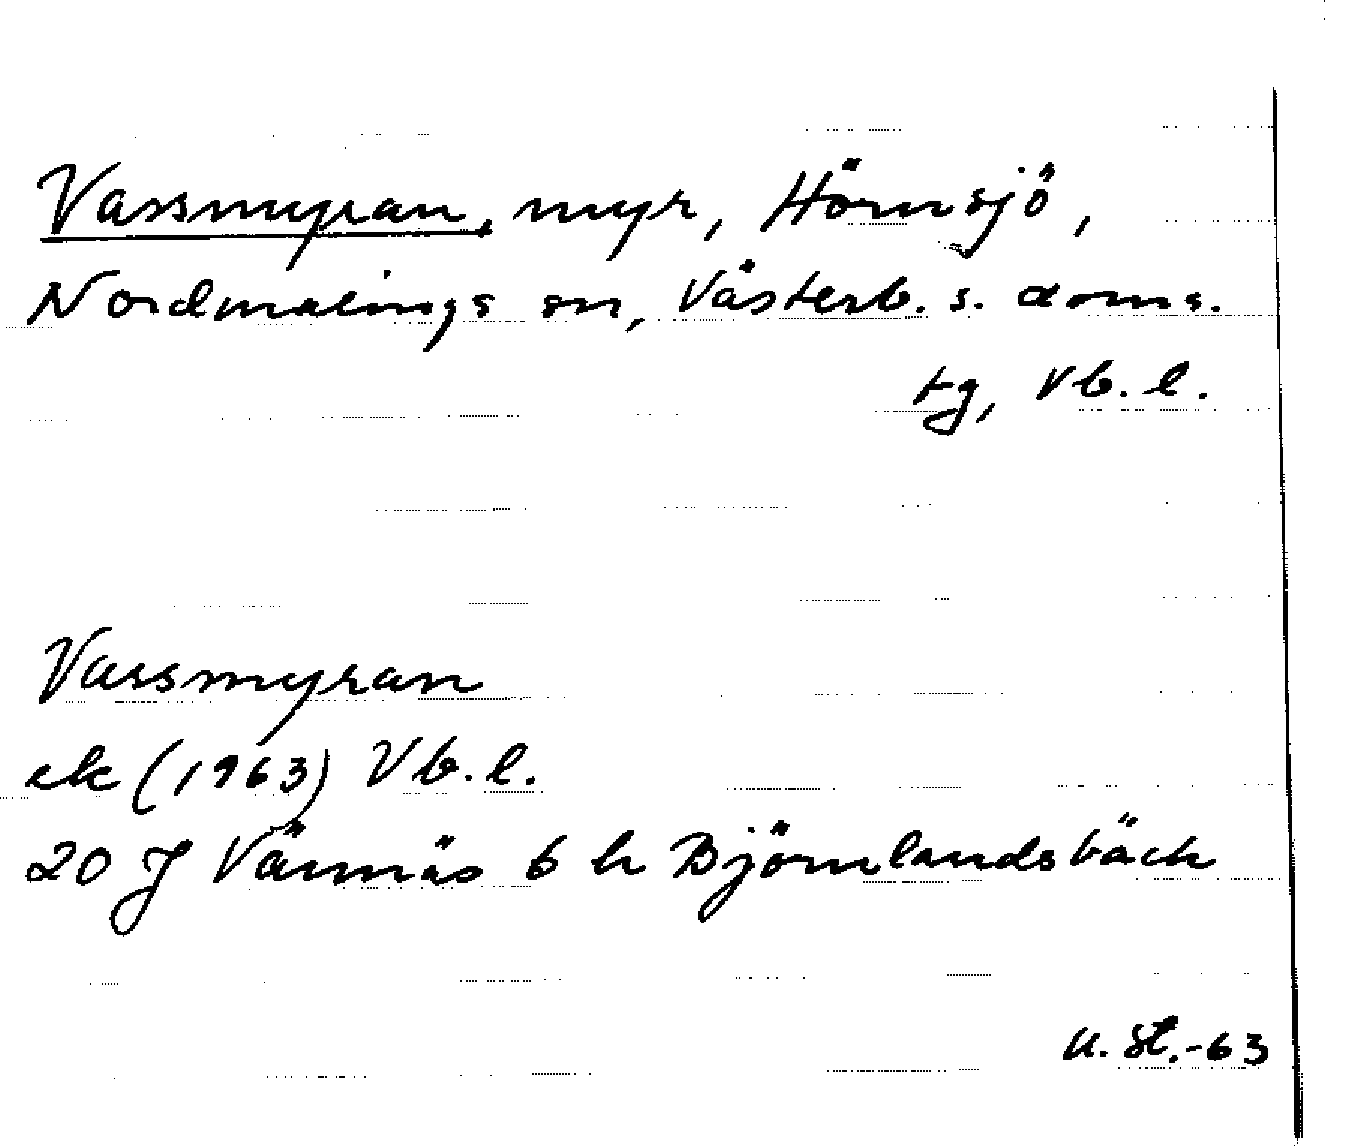 Vassmyran, myr, Hörnsjö,
Nordmalings sn, Västerb. s. doms.
tg, Vb. l.
Vassmyran
ek (1963) Vb. l.
20 J Vännäs 6 h Björnlandsbäck
U. St.-63